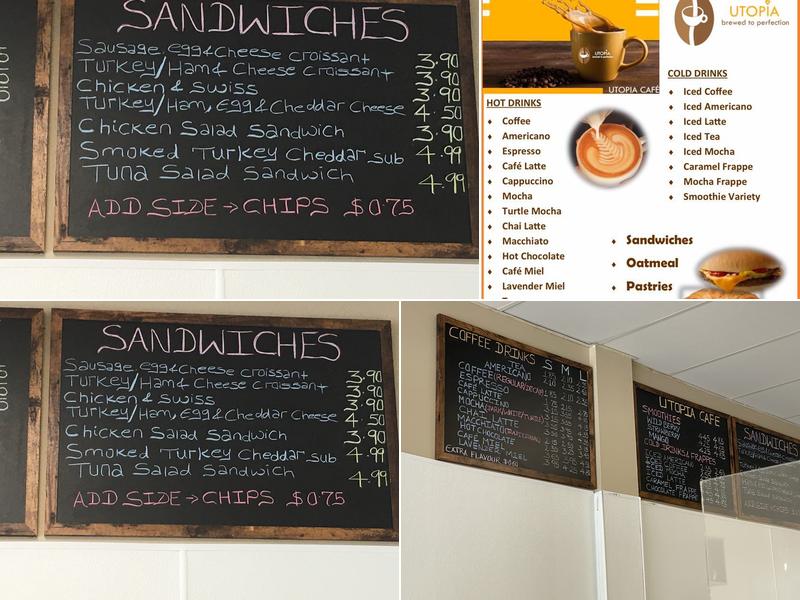 SANDWICHES
Sausage, egg & Cheese croissant 3.90
Turkey/Ham & Cheese Croissant 3.90
Chicken & Swiss 3.90
Turkey/Ham, Egg & Cheddar Cheese 4.50
Chicken Salad Sandwich 3.90
Smoked Turkey Cheddar sub 4.99
Tuna Salad Sandwich 4.99
ADD SIDE → CHIPS $0.75
UTOPIA CAFÉ
UTOPIA
brewed to perfection
HOT DRINKS
Coffee
Americano
Espresso
Café Latte
Cappuccino
Mocha
Turtle Mocha
Chai Latte
Macchiato
Hot Chocolate
Café Miel
Lavender Miel
COLD DRINKS
Iced Coffee
Iced Americano
Iced Latte
Iced Tea
Iced Mocha
Caramel Frappe
Mocha Frappe
Smoothie Variety
Sandwiches
Oatmeal
Pastries
SANDWICHES
Sausage, egg & Cheese croissant 3.90
Turkey/Ham & Cheese Croissant 3.90
Chicken & Swiss 3.90
Turkey/Ham, Egg & Cheddar Cheese 4.50
Chicken Salad Sandwich 3.90
Smoked Turkey Cheddar sub 4.99
Tuna Salad Sandwich 4.99
ADD SIDE → CHIPS $0.75
COFFEE DRINKS S M L
TEA
AMERICANO
COFFEE (REGULAR/DECAF)
ESPRESSO
CAFÉ LATTE
CAPPUCCINO
MOCHA (DARK/WHITE/TURTLE)
CHAI LATTE
MACCHIATO
HOT CHOCOLATE
CAFE MIEL
LAVENDER MIEL
EXTRA FLAVOUR $0.60
UTOPIA CAFE
SMOOTHIES
WILD BERRY
STRAWBERRY
MANGO
COLD DRINKS & FRAPPES
CARAMEL FRAPPE
CHOCOLATE FRAPPE
SANDWICHES